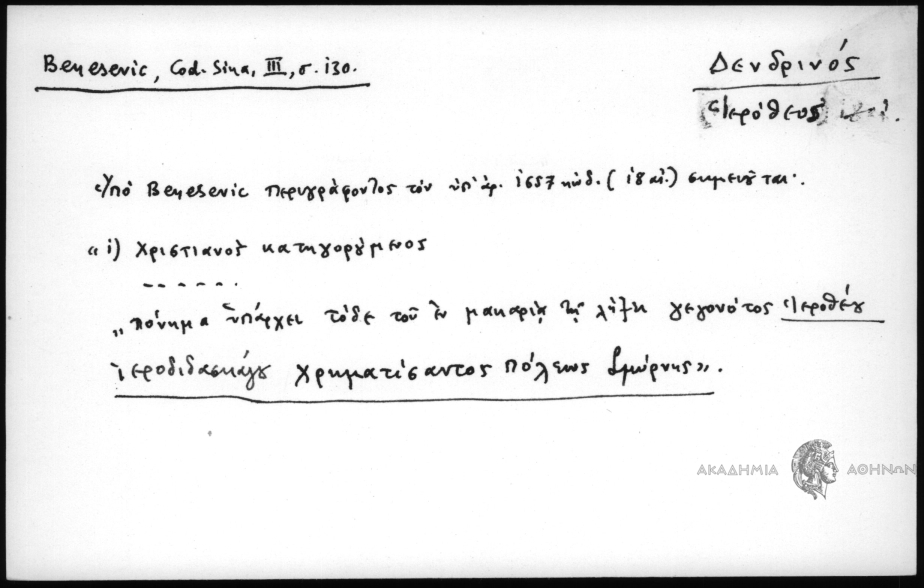 Beneševic, Cod. Sina, III, σ. 130.
Δενδρινός
Ἱερόθεος
Ὑπό Beneševic περιγράφοντος τόν ὑπ' ἀρ. 1557 κώδ. (18 αἰ.) σημειοῦται·
«1) Χριστιανός κατηγορούμενος
- - - - - -
„πόνημα ὑπάρχει τόδε τοῦ ἐν μακαρίᾳ τῇ λήξῃ γεγονότος Ἱεροθέου
ἱεροδιδασκάλου χρηματίσαντος πόλεως Σμύρνης».
ΑΚΑΔΗΜΙΑ ΑΘΗΝΩΝ